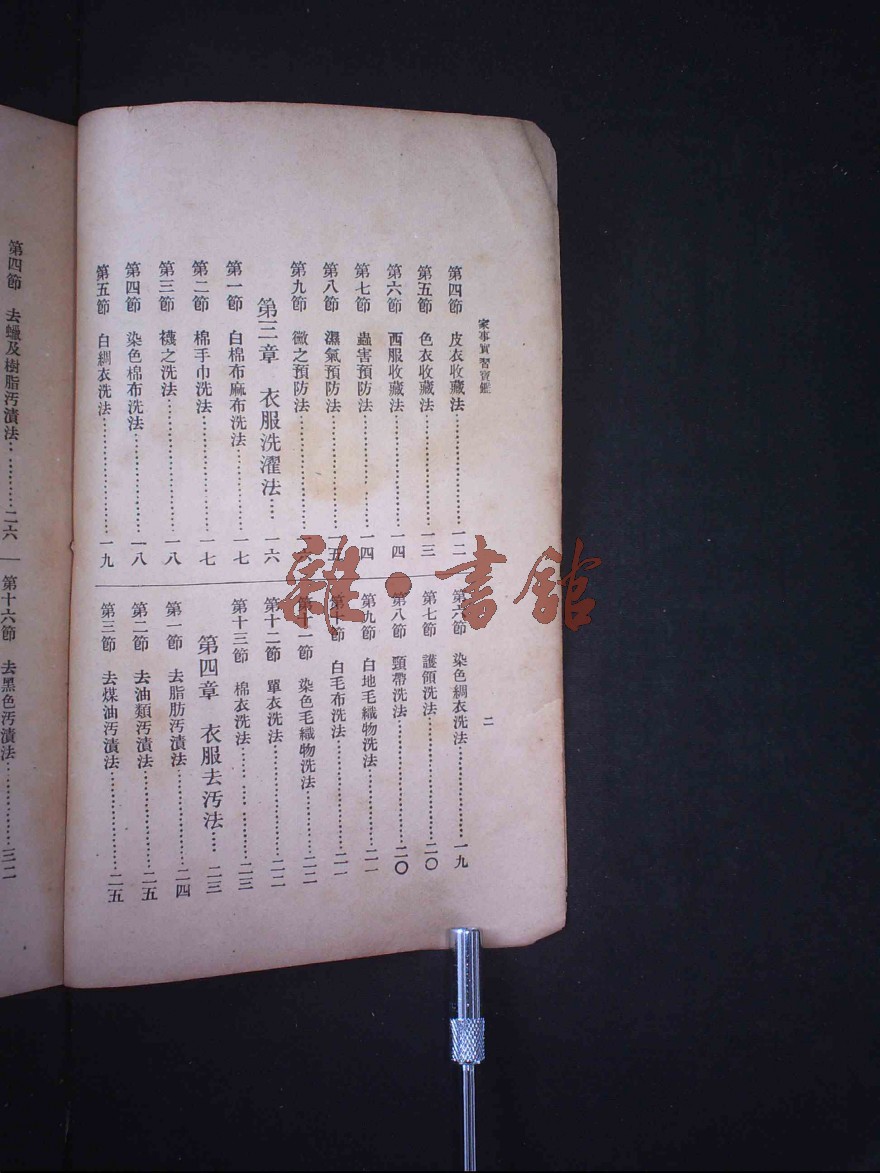 家事實習寶鑑
二
第四節　皮衣收藏法……………一二
第五節　色衣收藏法……………一三
第六節　西服收藏法……………一四
第七節　蟲害預防法……………一四
第八節　濕氣預防法……………一五
第九節　黴之預防法……………一六
第三章　衣服洗濯法……一六
第一節　白棉布麻布洗法…………一七
第二節　棉手巾洗法……………一七
第三節　襪之洗法……………一八
第四節　染色棉布洗法……………一八
第五節　白綢衣洗法……………一九
第六節　染色綢衣洗法……………一九
第七節　護領洗法……………二〇
第八節　頸帶洗法……………二〇
第九節　白地毛織物洗法…………二一
第十節　白毛布洗法……………二一
第十一節　染色毛織物洗法…………二二
第十二節　單衣洗法……………二二
第十三節　棉衣洗法……………二三
第四章　衣服去污法……二三
第一節　去脂肪污漬法……………二四
第二節　去油類污漬法……………二五
第三節　去煤油污漬法……………二五
第四節　去蠟及樹脂污漬法…………二六
第十六節　去黑色污漬法……………三二
雜·書館